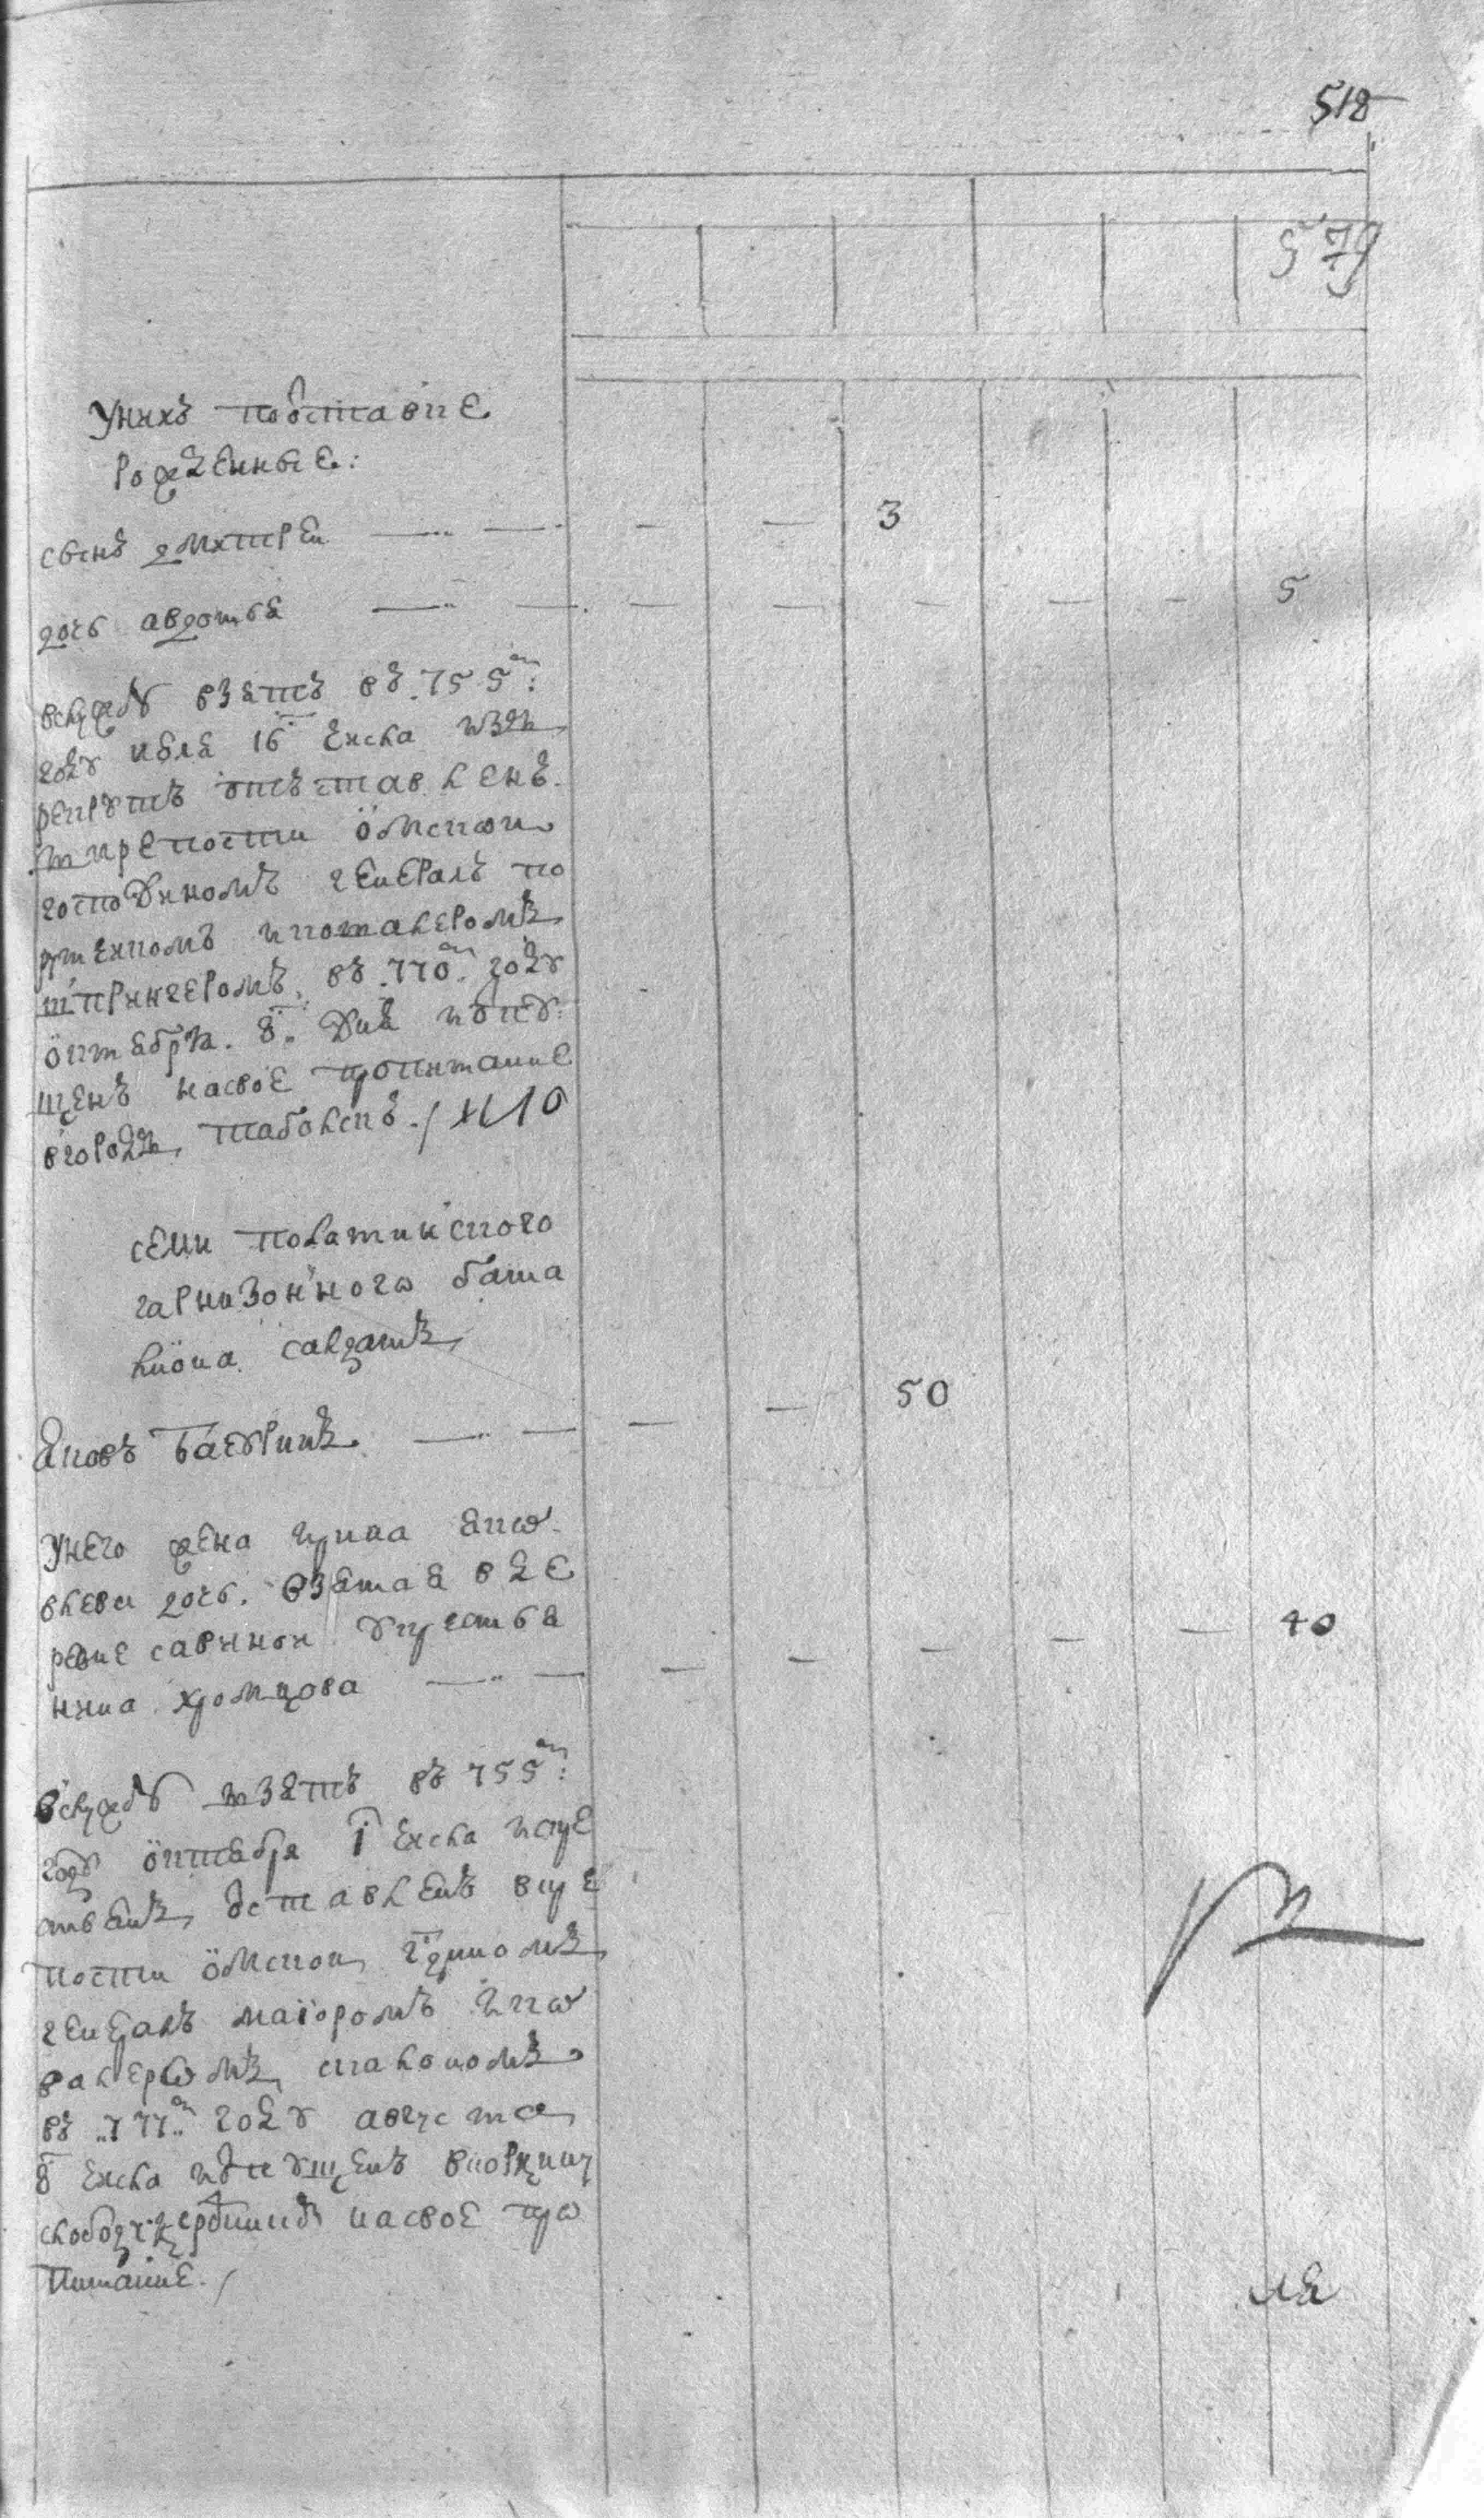 518
579
Унихъ поотставке
рожденные:
сынъ дмитрей — — — — 3
дочь авдотья — — — — — — — 5
вслужбу взятъ въ 755м:
году июля 16 числа изъ
рекрутъ отъставленъ
ткрепости омской
господиномъ генералъ по
рутчикомъ икавалеромъ
шпрингеромъ, въ 770м. году
октября. 8. дня иопу
щенъ насвое пропитание
вгородъ тобольскъ. / и 10
семиполатинского
гарнизонного бата
лиона салдатъ
яковъ — — — — 50
Унего жена ирина яко
влева дочь. взятая вде
ревне савиной у крестья
нина хромцова — — — — — — — 40
вслужбу взятъ въ 755м:
году октября 1 числа искре
стьянъ, отставленъ вкре
пости омской,
генералъ маиоромъ ико
валеромъ станоломъ
въ 777м году августа
8 числа иопущенъ
слободу насвое про
питание. /
ля